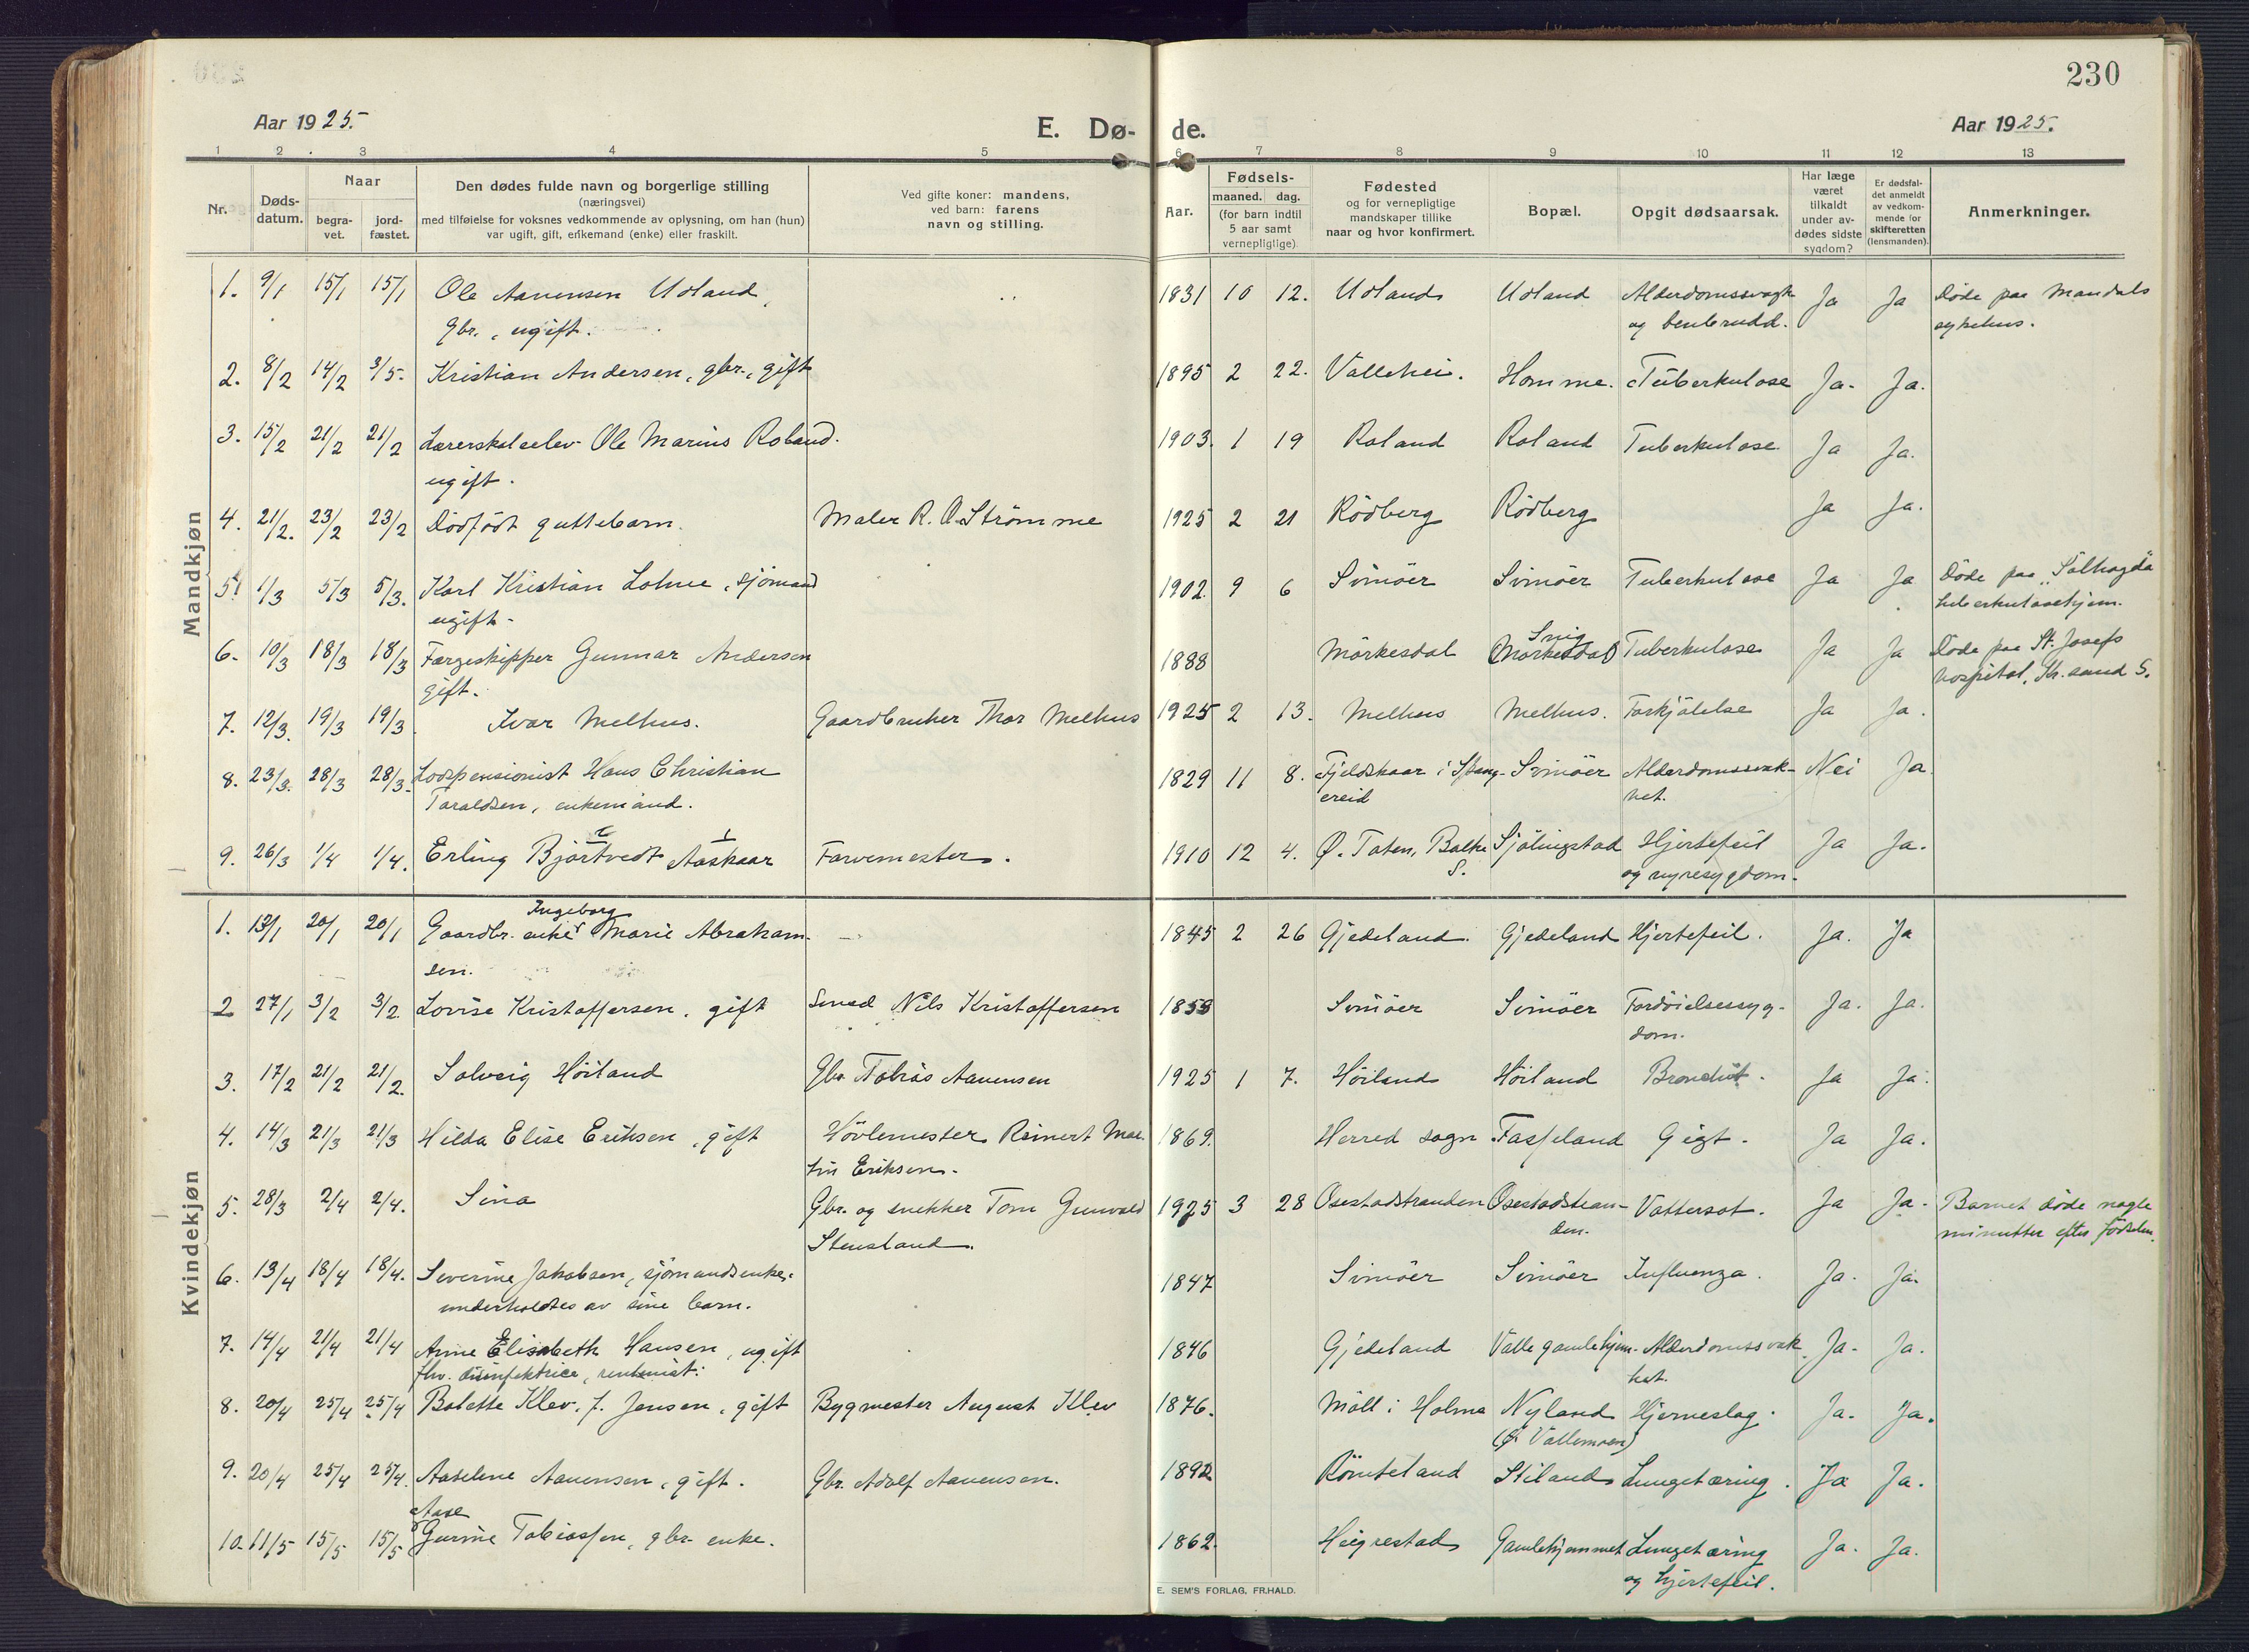 230
Aar 1925.
E. Dø- de.
Aar 1925.
1 2 3 4 5 6 7 8 9 10 11 12 13
Nr.
Døds-
datum.
Naar
begra-
vet.
jord-
fæstet.
Den dødes fulde navn og borgerlige stilling
(næringsvei)
med tilføielse for voksnes vedkommende av oplysning, om han (hun)
var ugift, gift, enkemand (enke) eller fraskilt.
Ved gifte koner: mandens,
ved barn: farens
navn og stilling.
Aar.
Fødsels-
maaned. dag.
(for barn indtil
5 aar samt
vernepligtige)
Fødested
og for vernepligtige
mandskaper tillike
naar og hvor konfirmert.
Bopæl.
Opgit dødsaarsak.
Har læge
været
tilkaldt
under av-
dødes sidste
sygdom?
Er dødsfal-
det anmeldt
av vedkom-
mende for
skifteretten
(lensmanden).
Anmerkninger.
Mandkjøn
1. 9/1 15/1 15/1 Ole Aanensen Udland, 1831 10 12. Udland Udland Alderdomssvagh. Ja Ja Döde paa Mandals
gbr., ugift. og benbrudd. sykehus.
2. 8/2 14/2 3/5. Kristian Andersen, gbr., gift 1895 2 22. Vallehei. Homme. Tuberkulose Ja. Ja.
3. 15/2 21/2 21/2 Lærerskoleelev Ole Marius Roland. 1903. 1 19 Roland Roland Tuberkulose Ja Ja.
ugift.
4. 21/2. 23/2 23/2 Dödfödt guttebarn. Maler R. O. Strömme 1925 2 21 Rödberg Rödberg Ja Ja.
5. 1/3 5/3 5/3. Karl Kristian Lohne, sjömand 1902. 9 6 Svinöer Svinöer Tuberkulose Ja Ja Döde paa "Solhøgda
ugift. tuberkulosehjem.
6. 10/3 18/3 18/3 Færgeskipper Gunnar Andersen 1888 Mörkesdal Snig (Mörkesdal) Tuberkulose Ja Ja Döde paa St. Josefs
gift. hospital, Kr.sand S.
7. 12/3. 19/3 19/3 Ivar Melhus. Gaardbruker Thor Melhus 1925 2 13. Melhus Melhus. Forkjölelse Ja Ja.
8. 23/3. 28/3 28/3. Lodspensionist Hans Christian 1829 11 8. Fjeldskaar i Spang- Svinöer Alderdomssvak- Nei Ja.
Taraldsen, enkemand. ereid het.
9. 26/3 1/4 1/4. Erling Björtvedt Aaskaar Farvemester. 1910 12 4. Ø. Toten, Balke Sjölingstad Hjertefeil Ja Ja.
S. og nyresygdom.
Kvindekjøn
1. 13/1 20/1 20/1 Gaardbr. enke Ingeborg Marie Abraham- 1845 2 26 Gjedeland. Gjedeland Hjertefeil. Ja. Ja
sen.
2 27/1 3/2 3/2. Lovise Kristoffersen, gift Smed Nils Kristoffersen 1853 Svinöer Svinöer Fordöielsessyg- Ja. Ja.
dom.
3. 17/2 21/2 21/2. Solveig Höiland Gbr. Tobias Aanensen 1925 1 7. Höiland Höiland Bronchit. Ja Ja.
4. 14/3 21/3 21/3 Hilda Elise Eriksen, gift Hövlemester Reinert Mar- 1869. Herred sogn Fasseland Gigt. Ja Ja.
tin Eriksen.
5. 28/3 2/4 2/4. Sina Gbr. og snekker Tom Gunvald 1925 3 28 Osestadstranden Osestadstran- Vattersot. Ja Ja. Barnet döde nogle
Stensland. den. minutter efter födselen.
6. 13/4 18/4 18/4. Severine Jakobsen, sjömandsenke, 1847 Svinöer Svinöer Influenza. Ja. Ja.
underholdtes av sine barn.
7. 14/4 21/4 21/4 Anne Elisabeth Hansen, ugift 1846 Gjedeland Valle gamlehjem. Alderdomssvak- Ja. Ja.
fhv. disinfektrice, rentenist. het.
8. 20/4 25/4 25/4 Bolette Klev, f. Jensen, gift Bygmester August Klev 1876. Möll i Holme Nyland Hjerneslag. Ja. Ja.
(Ø. Vallemoen)
9. 20/4 25/4 25/4. Aaselene Aanensen, gift. Gbr. Adolf Aanensen. 1892 Römteland Stiland Lungetæring. Ja Ja.
10. 11/5 15/5 15/5 Aase Gurine Tobiassen, gbr. enke. 1862. Heigrestad Gamlehjemmet Lungetæring Ja. Ja.
og hjertefeil.
E. SEM'S FORLAG, FR.HALD.